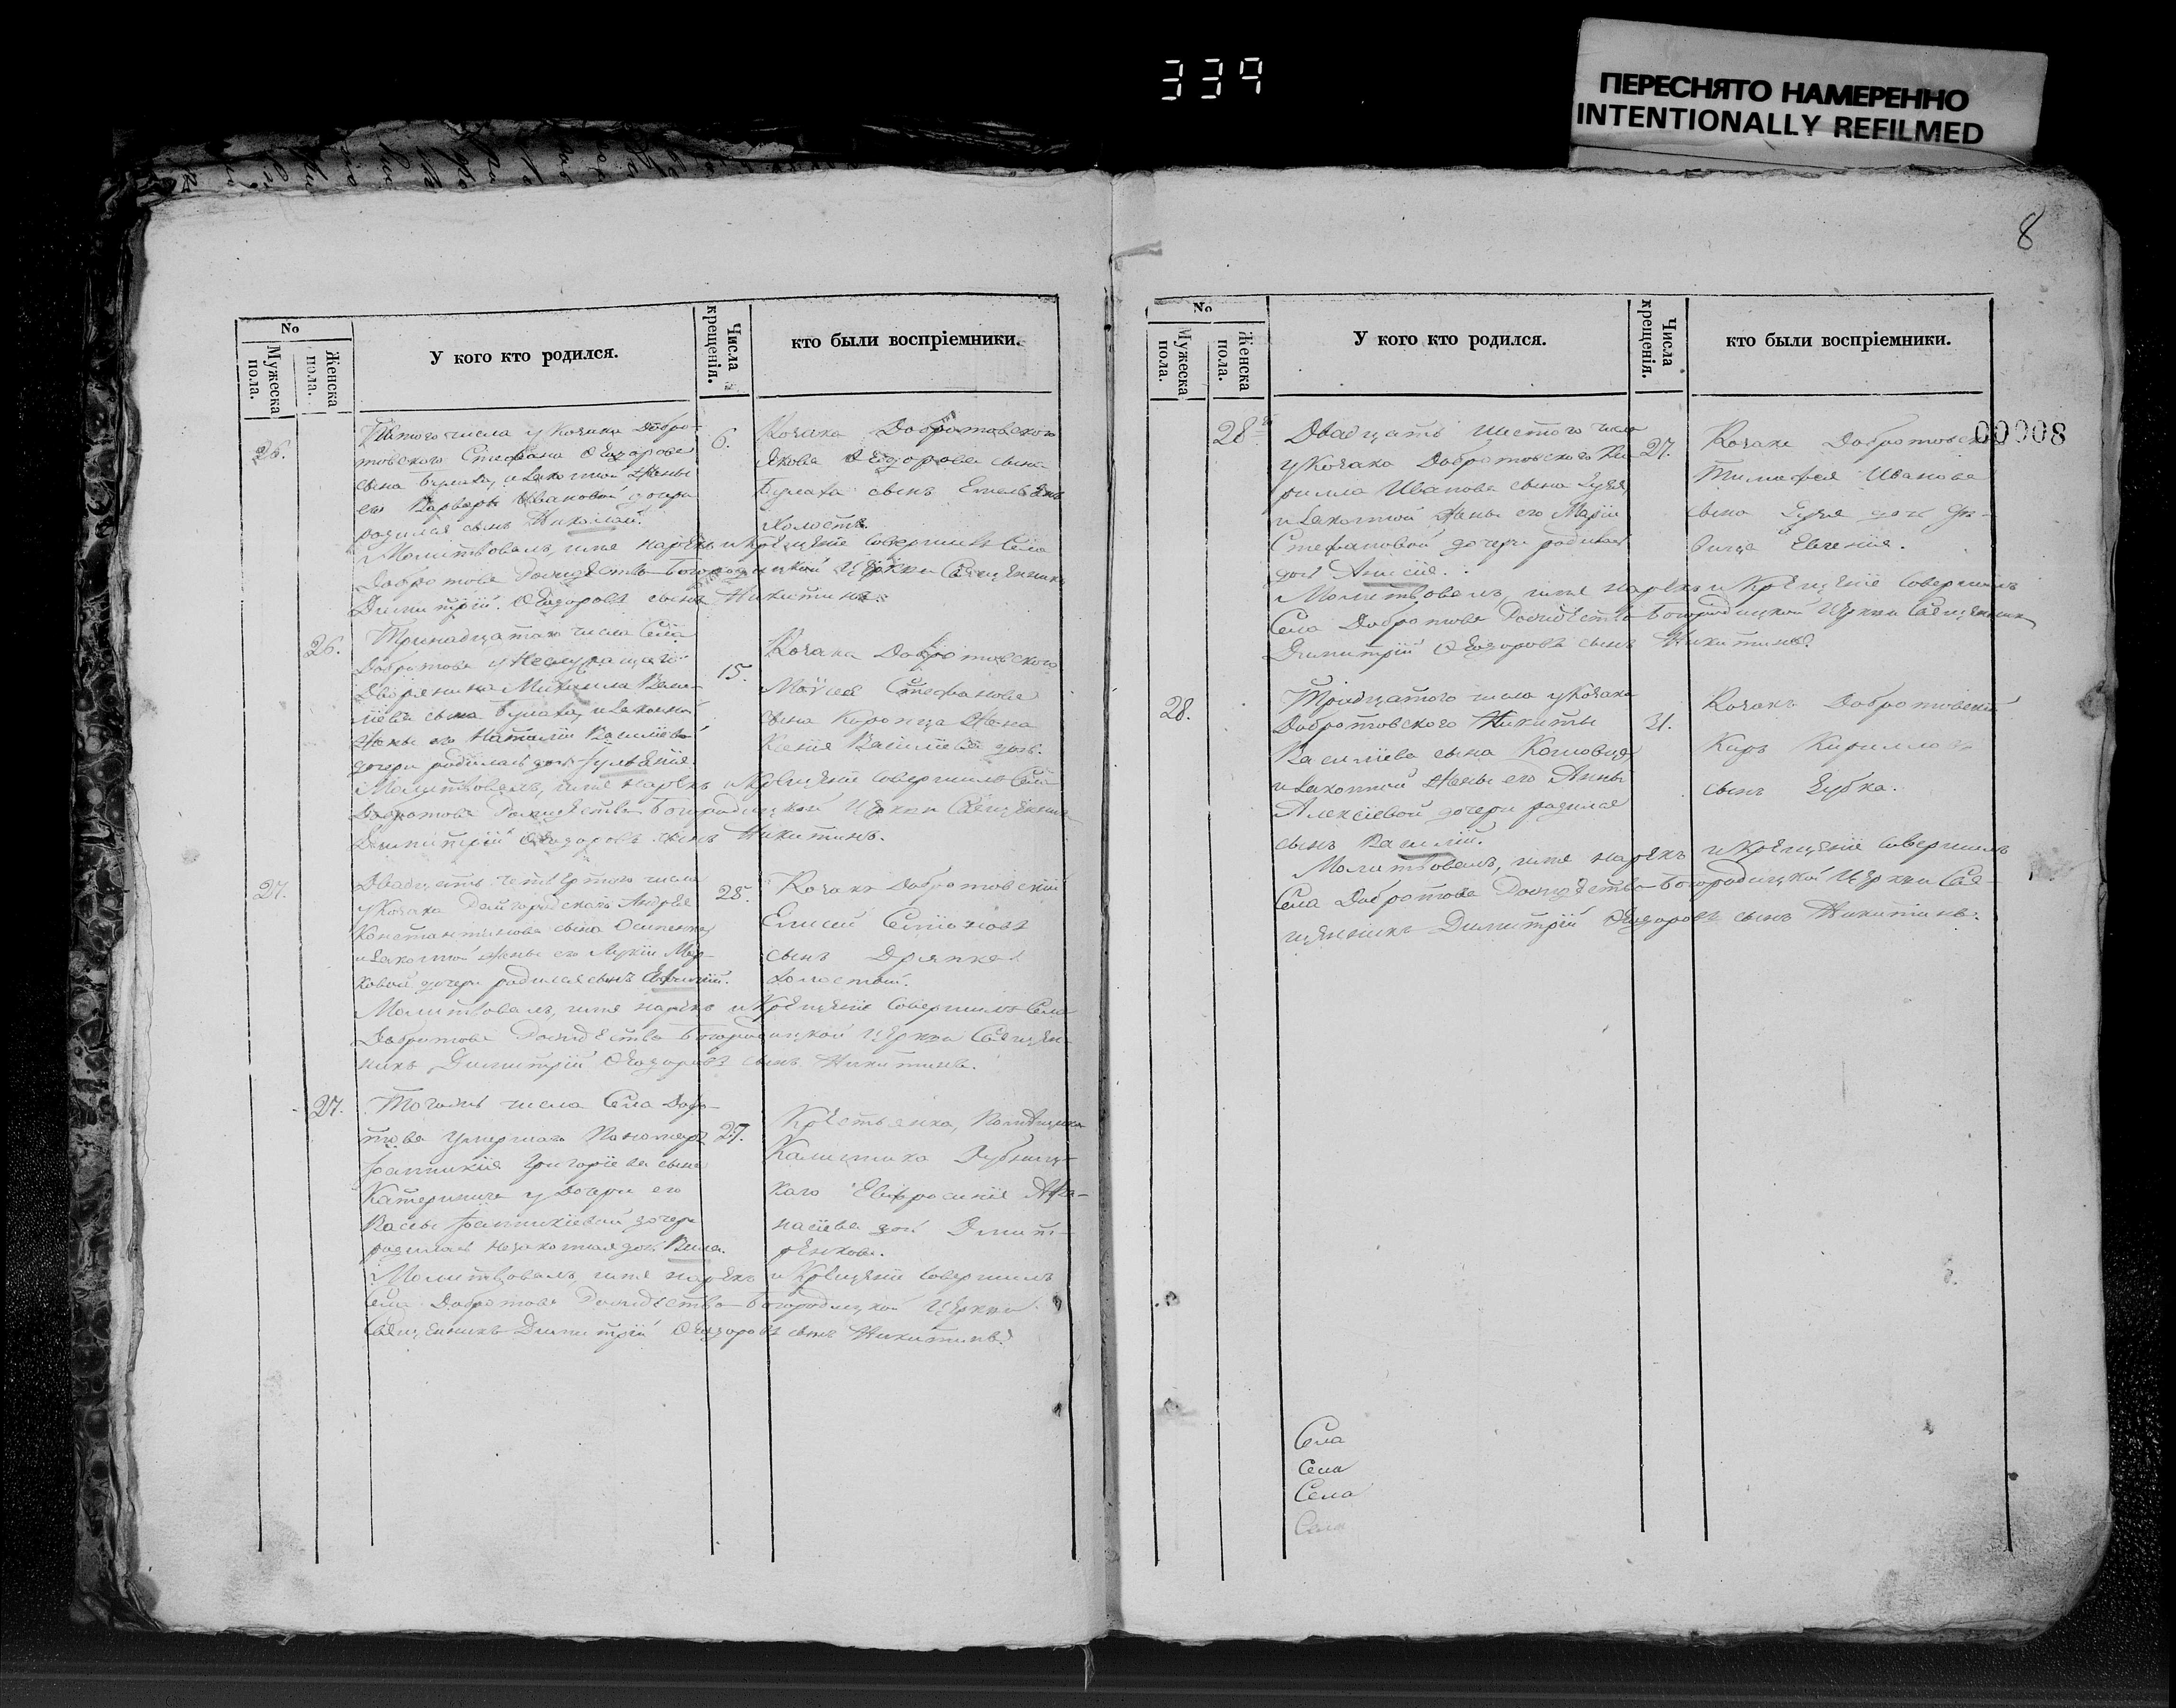 339
ПЕРЕСНЯТО НАМЕРЕННО
INTENTIONALLY REFILMED
8
00008
No
Мужеска пола.
Женска пола.
У кого кто родился.
Числа крещенія.
кто были воспріемники.
26.
Пятого числа у Козака Добро-
товского Стефана Ѳеодорова
сына Булаха, и законной жены
его Варвары Ивановой дочери
родился сынъ Николай.
6.
Козака Добротовского
Якова Ѳеодорова сына
Булаха сынъ Емельянъ
холостъ.
Молитвовалъ, имя нарекъ и Крещеніе совершилъ Села
Добротова Рождество-Богородицкой Церкви Священникъ
Димитрій Ѳеодоровъ сынъ Никитинъ.
26.
Тринадцатого числа Села
Добротова у
Дворянина Михаила Васи-
ліева сына Булаха, и законной
жены его Наталіи Василіевой
дочери родилась дочь
15.
Козака Добротовского
Моѵсея Стефанова
сына жена
Ксенія Василіева дочь.
Молитвовалъ, имя нарекъ и Крещеніе совершилъ Села
Добротова Рождество-Богородицкой Церкви Священникъ
Димитрій Ѳеодоровъ сынъ Никитинъ.
27.
Двадцать четвертого числа
у Козака Андрея
Константинова сына Осипенка,
и законной жены его Лукіи Мар-
ковой дочери родился сынъ
25.
Козакъ Добротовскій
Елисей Семіоновъ
сынъ Дряпка
холостый.
Молитвовалъ, имя нарекъ и Крещеніе совершилъ Села
Добротова Рождество-Богородицкой Церкви Священ-
никъ Димитрій Ѳеодоровъ сынъ Никитинъ.
27.
Тогожъ числа Села Добро-
това умершаго Пономаря
Іоанникія Григоріева сына
у дочери его
Іоанникіевой дочери
родилась незаконная дочь
27.
Крестьянка, Помѣщика
Калистрата
каго Евфросинія Аѳа-
насіева дочь Дмит-
ренкова.
Молитвовалъ, имя нарекъ и Крещеніе совершилъ
Села Добротова Рождество-Богородицкой Церкви
Священникъ Димитрій Ѳеодоровъ сынъ Никитинъ.
No
Мужеска пола.
Женска пола.
У кого кто родился.
Числа крещенія.
кто были воспріемники.
28.
Двадцать шестого числа
у Козака Добротовского Ки-
рилла Иванова сына Зуя,
и законной жены его Маріи
Стефановой дочери родилась
дочь Анисія.
27.
Козака Добротовск
Тимофея Иванова
сына Зуя дочь дѣ-
вица Евгенія.
Молитвовалъ, имя нарекъ и Крещеніе совершилъ
Села Добротова Рождество-Богородицкой Церкви Священникъ
Димитрій Ѳеодоровъ сынъ Никитинъ.
28.
Тридцатого числа у Козака
Добротовского Никиты
Василіева сына
и законной жены его Анны
Алексіевой дочери родился
сынъ Василій.
31.
Козакъ Добротовскій
Киръ Кирилловъ
сынъ Зубка.
Молитвовалъ, имя нарекъ и Крещеніе совершилъ
Села Добротова Рождество-Богородицкой Церкви Свя-
щенникъ Димитрій Ѳеодоровъ сынъ Никитинъ.
Села
Села
Села
Села